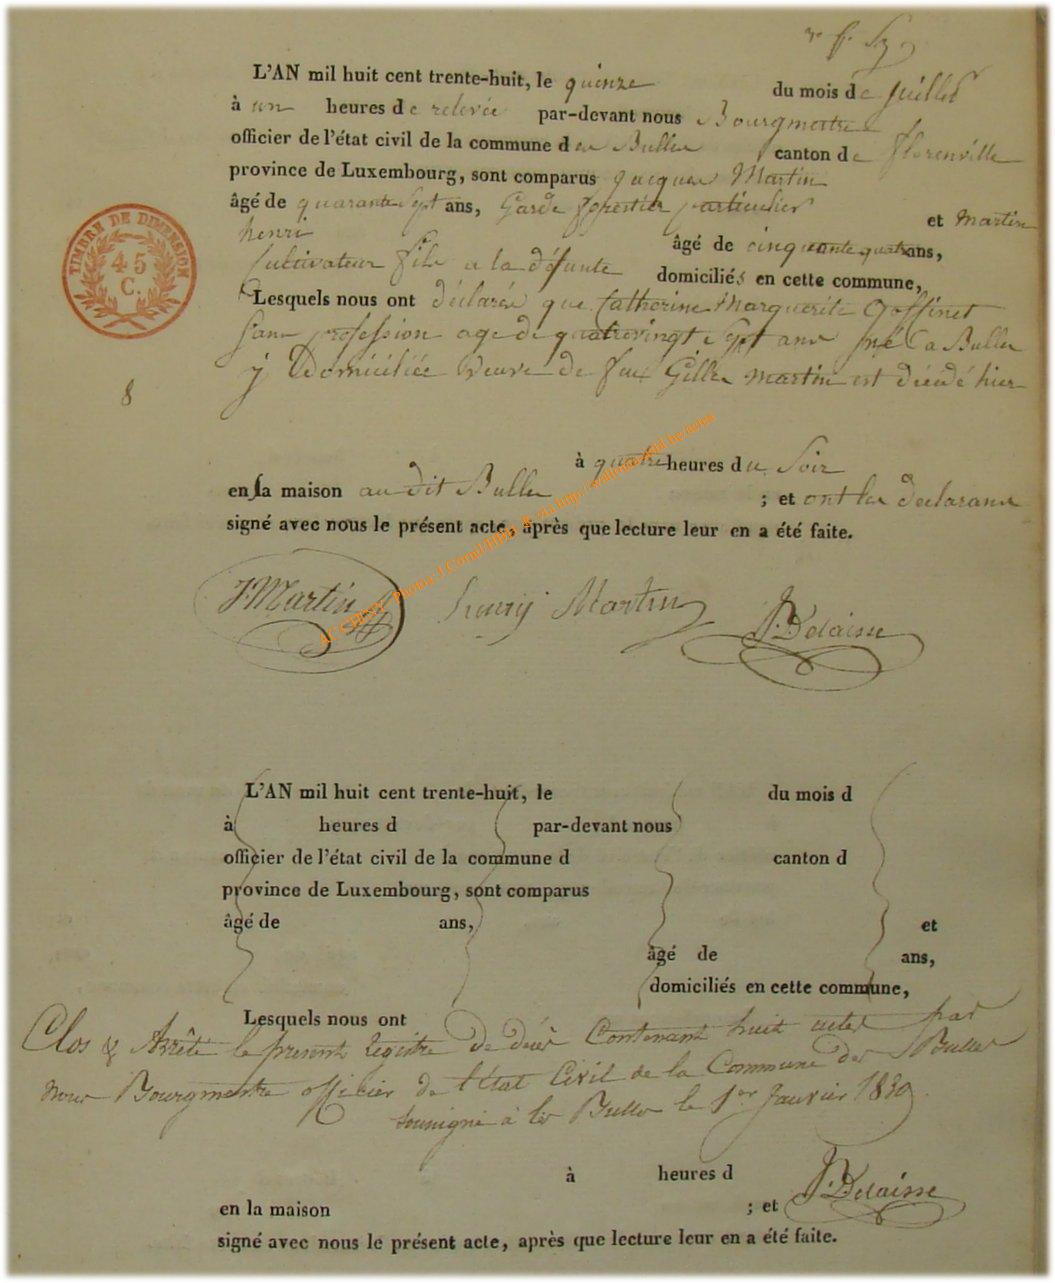 L'AN mil huit cent trente-huit, le quinze du mois de juillet
à un heures de relevée par-devant nous Bourgmestre
officier de l'état civil de la commune des Bulles canton de florenville
province de Luxembourg, sont comparus Jacques Martin
âgé de quarante Sept ans, Garde forestier particulier et Martin
henri âgé de cinquante quatre ans,
Cultivateur fils a la défunte domiciliés en cette commune,
Lesquels nous ont déclarés que Catherine Marguerite Goffinet
Sans profession age de quatrevingt Sept ans né a Bulles
y Domiciliée Veuve de feu Gilles Martin est décédé hier
TIMBRE DE DIMENSION
45
C.
8
à quatre heures du Soir
en sa maison au dit Bulles ; et ont les declarans
signé avec nous le présent acte, après que lecture leur en a été faite.
J Martin henry Martin J. Delaisse
L'AN mil huit cent trente-huit, le du mois d
à heures d par-devant nous
officier de l'état civil de la commune d canton d
province de Luxembourg, sont comparus
âgé de ans, et
âgé de ans,
domiciliés en cette commune,
Lesquels nous ont
Clos & Arrêté le present registre de décès Contenant huit actes par
nous Bourgmestre officier de l'état Civil de la Commune des Bulles
soussigné à les Bulles le 1er Janvier 1839.
à heures d
en la maison ; et J. Delaisse
signé avec nous le présent acte, après que lecture leur en a été faite.